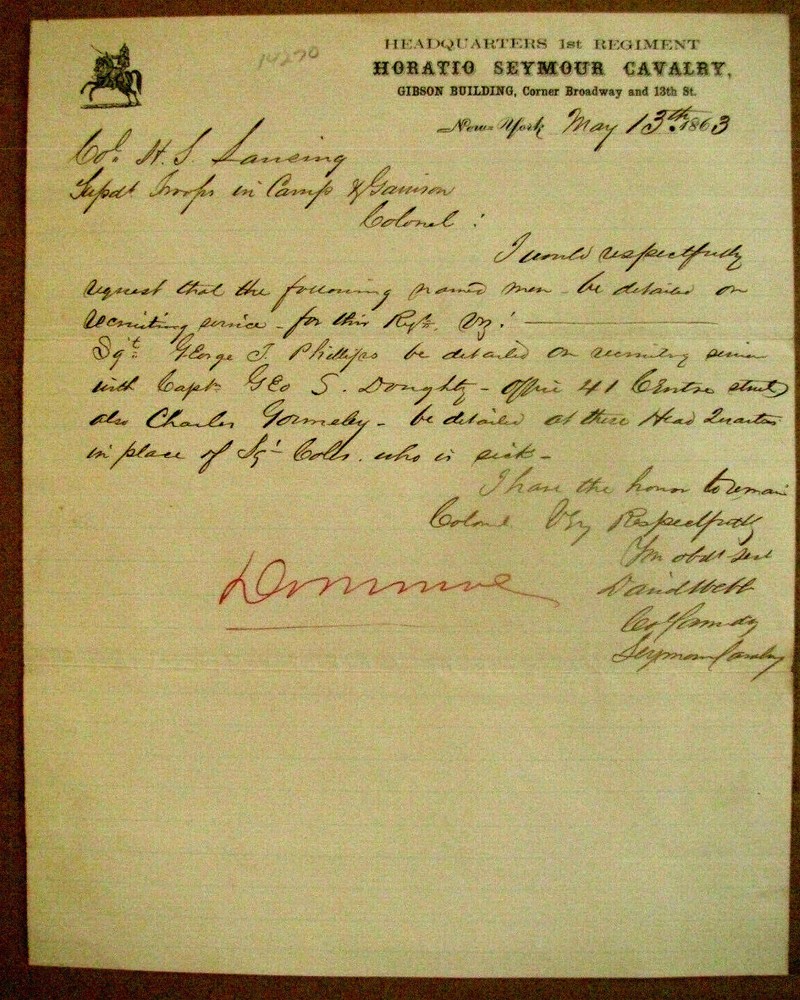 14270
HEADQUARTERS 1st REGIMENT
HORATIO SEYMOUR CAVALRY,
GIBSON BUILDING, Corner Broadway and 13th St.
New-York May 13th 1863
Col. H. S. Lansing
Supdt Troops in Camp & Garrison
Colonel :
I would respectfully
request that the following named men - be detailed on
recruiting service - for this Regt. Viz:
Sgt. George T. Phillips be detailed on recruiting service
with Capt. Geo S. Doughty - office 41 Centre street
also Charles Gormeley - be detailed at these Head Quarters
in place of Sgt Coles. who is sick -
I have the honor to remain
Colonel Vry Respectfully
Yr obdt Svt
David Webb
Col Comdg
Seymour Cavalry